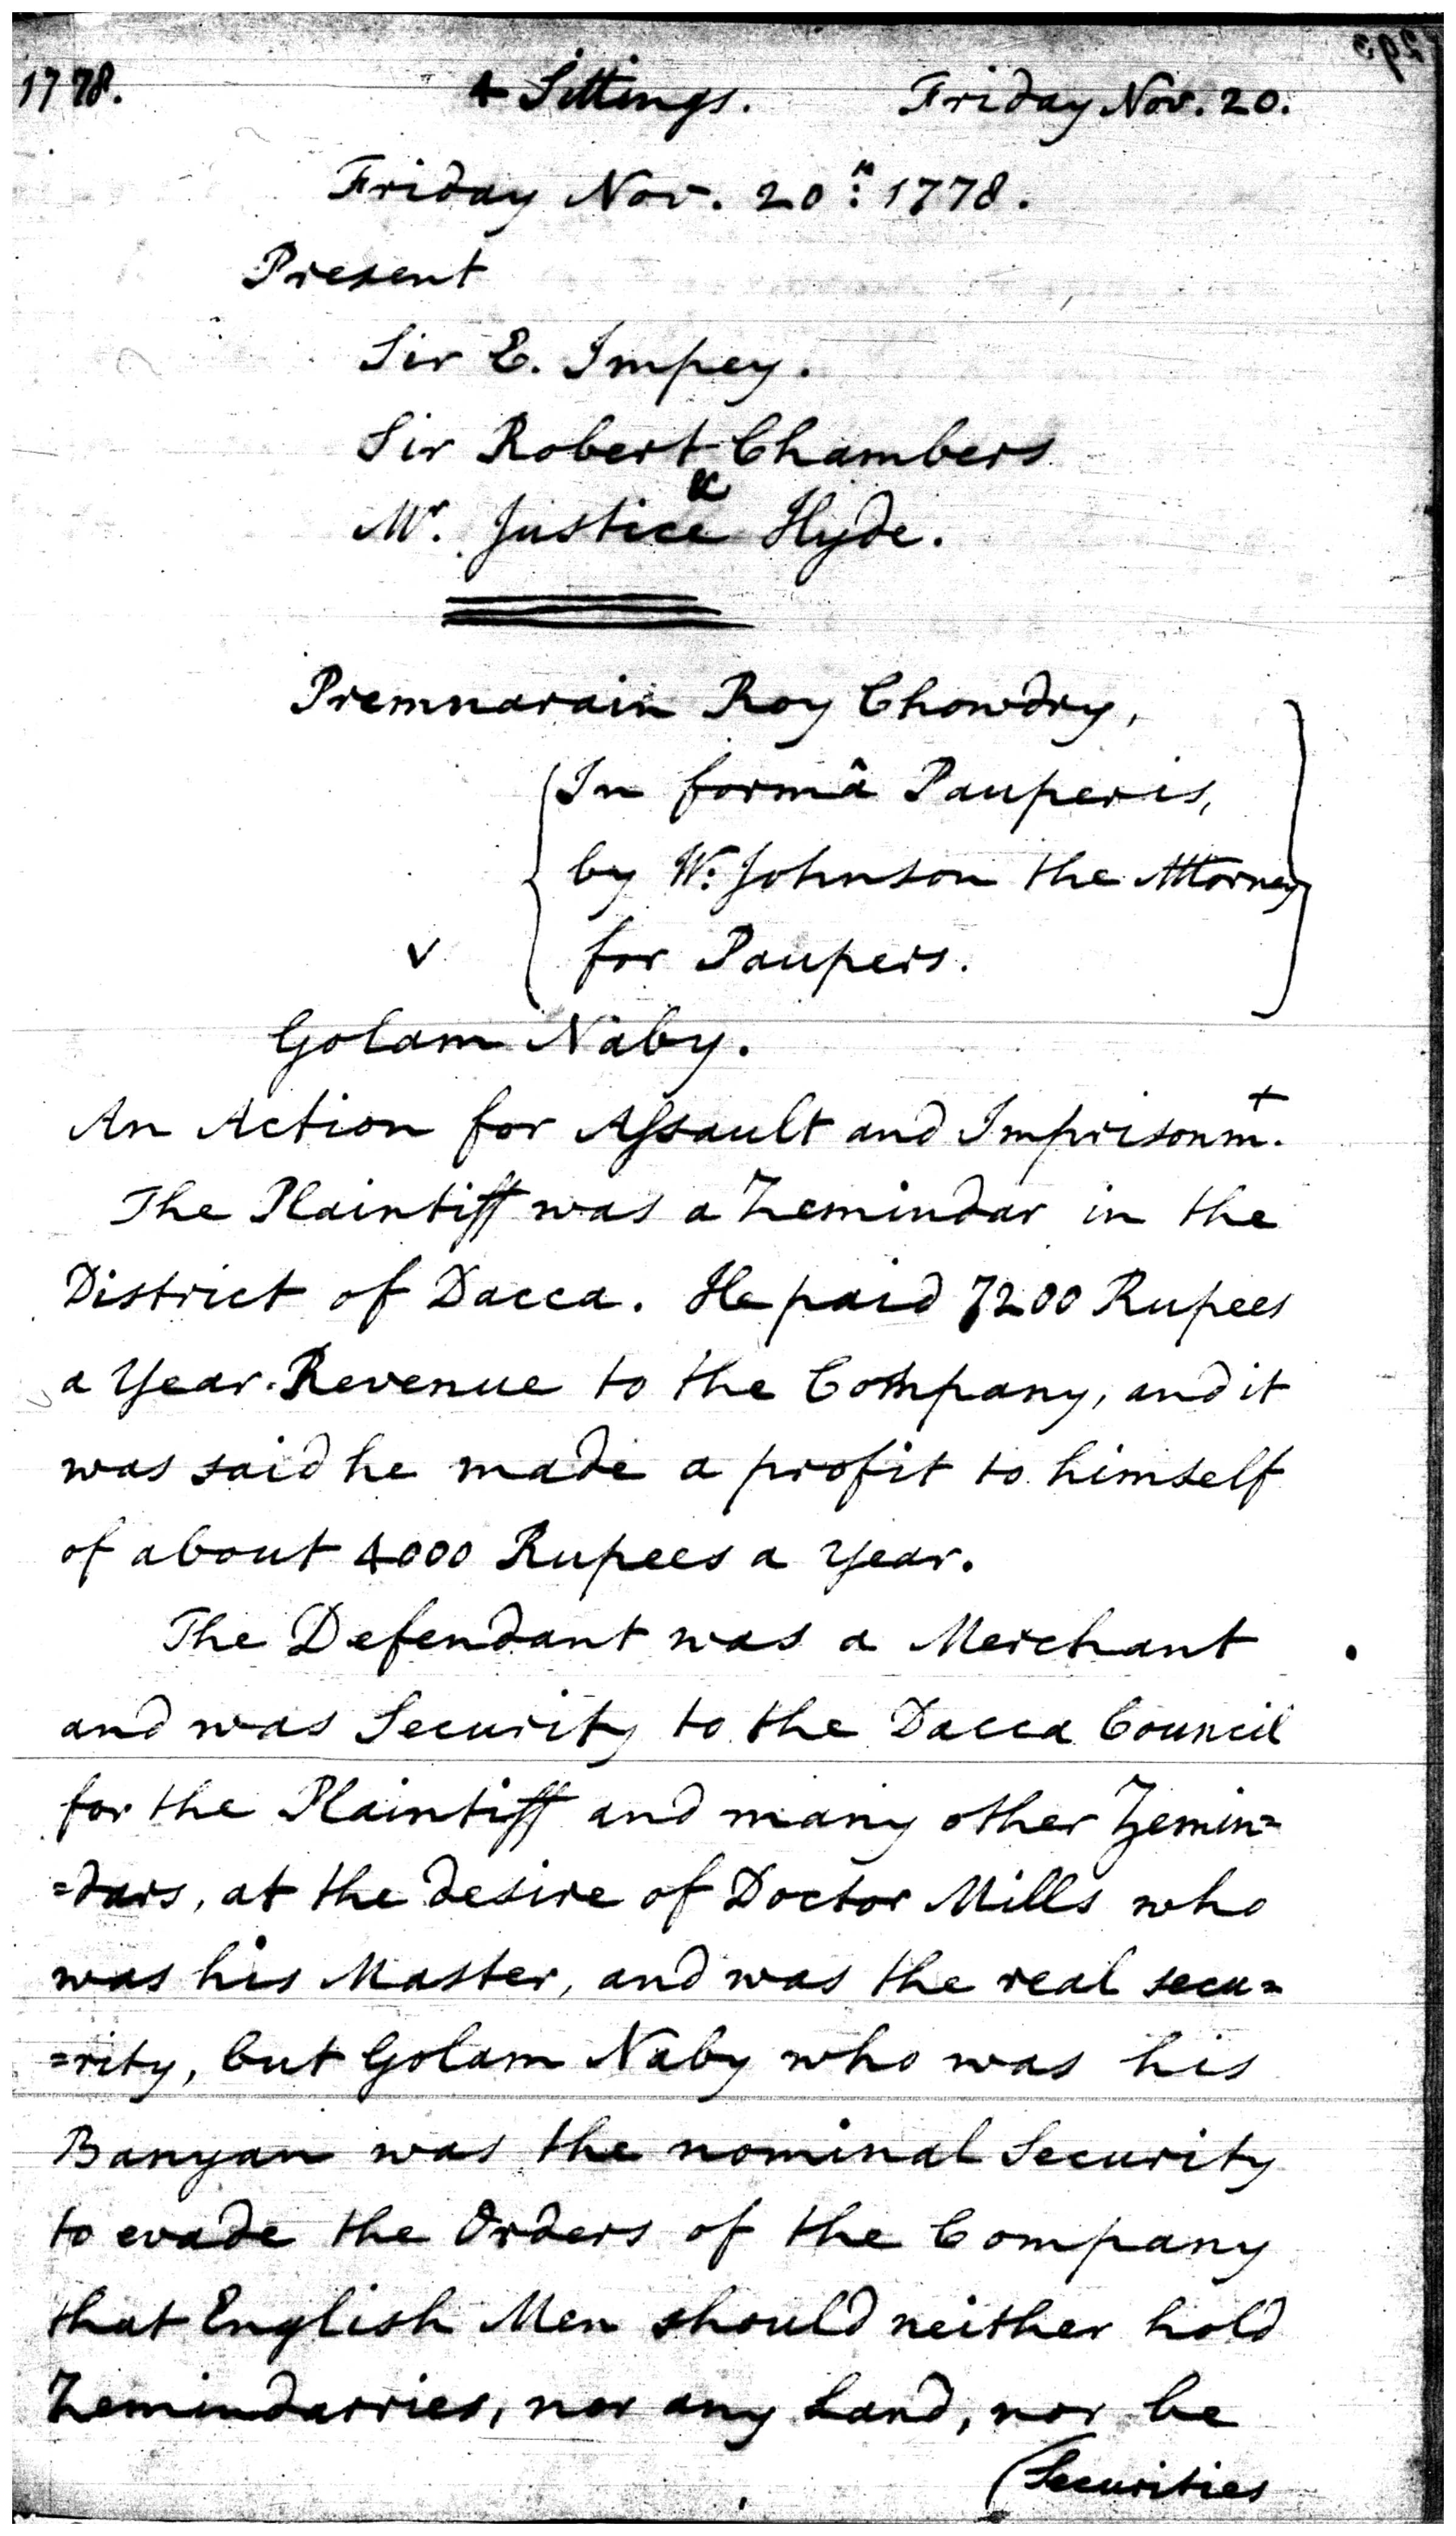 1778. 4 Sittings. Friday Nov. 20.
Friday Nov. 20th: 1778.
Present
Sir E. Impey.
Sir Robert Chambers
&
Mr. Justice Hyde.
Premnarain Roy Chowdry,
In formâ Pauperis,
by W: Johnson the Attorney
v for Paupers.
Golam Naby.
An Action for Assault and Imprisonmt.
The Plaintiff was a Zemindar in the
District of Dacca. He paid 7200 Rupees
a Year Revenue to the Company, and it
was said he made a profit to himself
of about 4000 Rupees a Year.
The Defendant was a Merchant
and was Security to the Dacca Council
for the Plaintiff and many other Zemin=
=dars, at the desire of Doctor Mills who
was his Master, and was the real secu=
=rity, but Golam Naby who was his
Banyan was the nominal Security
to evade the Orders of the Company
that English Men should neither hold
Zemindarries, nor any Land, nor be
(Securities